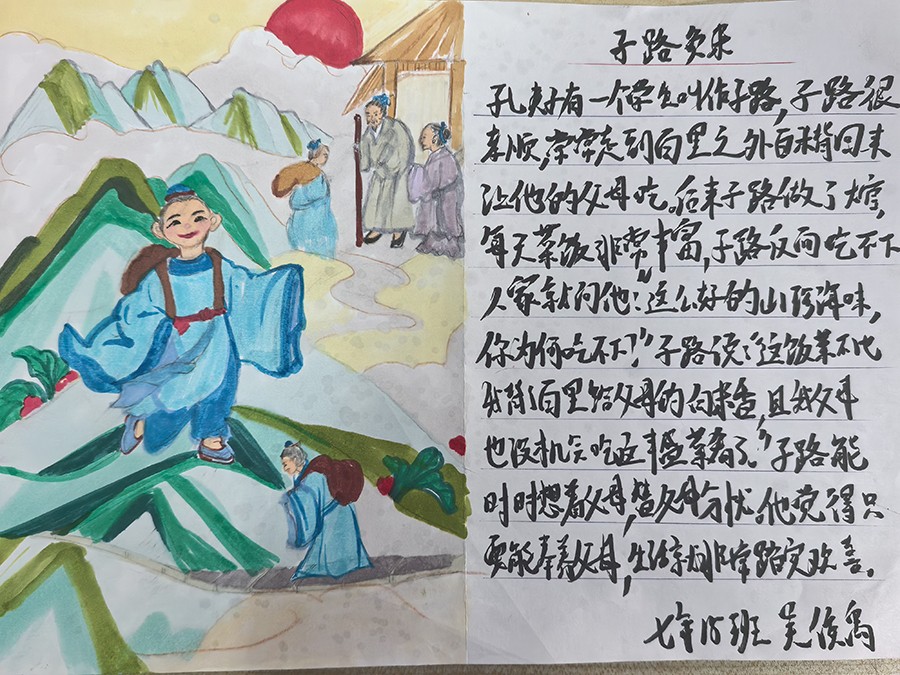 子路负米
孔夫子有一个学生叫作子路,子路很
孝顺,常常走到百里之外百米背回来
让他的父母吃。后来子路做了官,
每天菜饭非常丰富,子路反而吃不下
人家就问他:“这么好的山珍海味,
你为何吃不下?”子路说:“这饭菜不比
我背百里给父母的白米香,且我父母
也没机会吃这丰盛菜肴了。”子路能
时时想着父母,替父母分忧。他觉得只
要能奉养父母,生活就非常踏实欢喜。
七年15班 吴俊禹